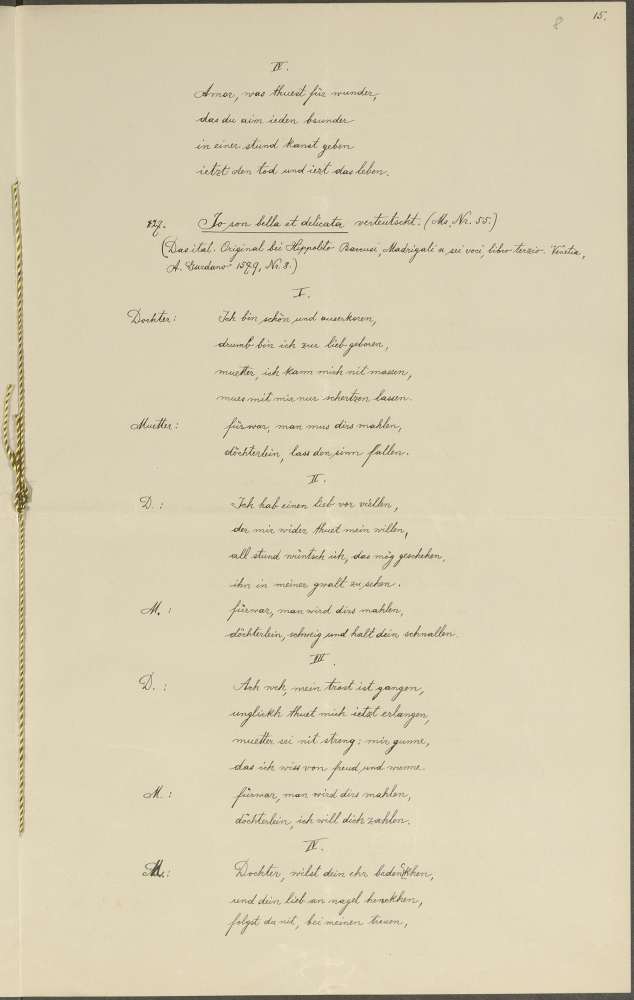 8
15.
IV.
Amor, was thuest für wunder,
das du aim ieden bsunder
in einer stund kanst geben
ietzt den tod und iezt das leben.
Jo son bella et delicata verteutscht. (Ms. Nr. 55.)
(Das ital. Original bei Hippolito Baccusi, Madrigali a sei voci, libro terzio. Venetia,
A. Gardano 1579, Nr. 8.)
I.
Dochter: Ich bin schön und auserkoren,
drumb bin ich zur lieb geboren,
muetter, ich kann mich nit massen,
mues mit mir nur schertzen lassen.
Muetter: fürwar, man mus dirs mahlen,
döchterlein, lass den sinn fallen.
II.
D.: Ich hab einen lieb vor viellen,
der mir wider thuet mein willen,
all stund wüntsch ich, das mög geschehen,
ihn in meiner gwalt zu sehen.
M.: fürwar, man wird dirs mahlen,
döchterlein, schweig und halt dein schnallen.
III.
D.: Ach weh, mein trost ist gangen,
unglickh thuet mich ietzt erlangen,
muetter sei nit streng: mir gunne,
das ich wiss von freud und wunne.
M.: fürwar, man wird dirs mahlen,
döchterlein, ich will dich zahlen.
IV.
M.: Dochter, wilst dein ehr bedenckhen,
und dein lieb an nagel henckhen,
folgst du nit, bei meinen treuen,